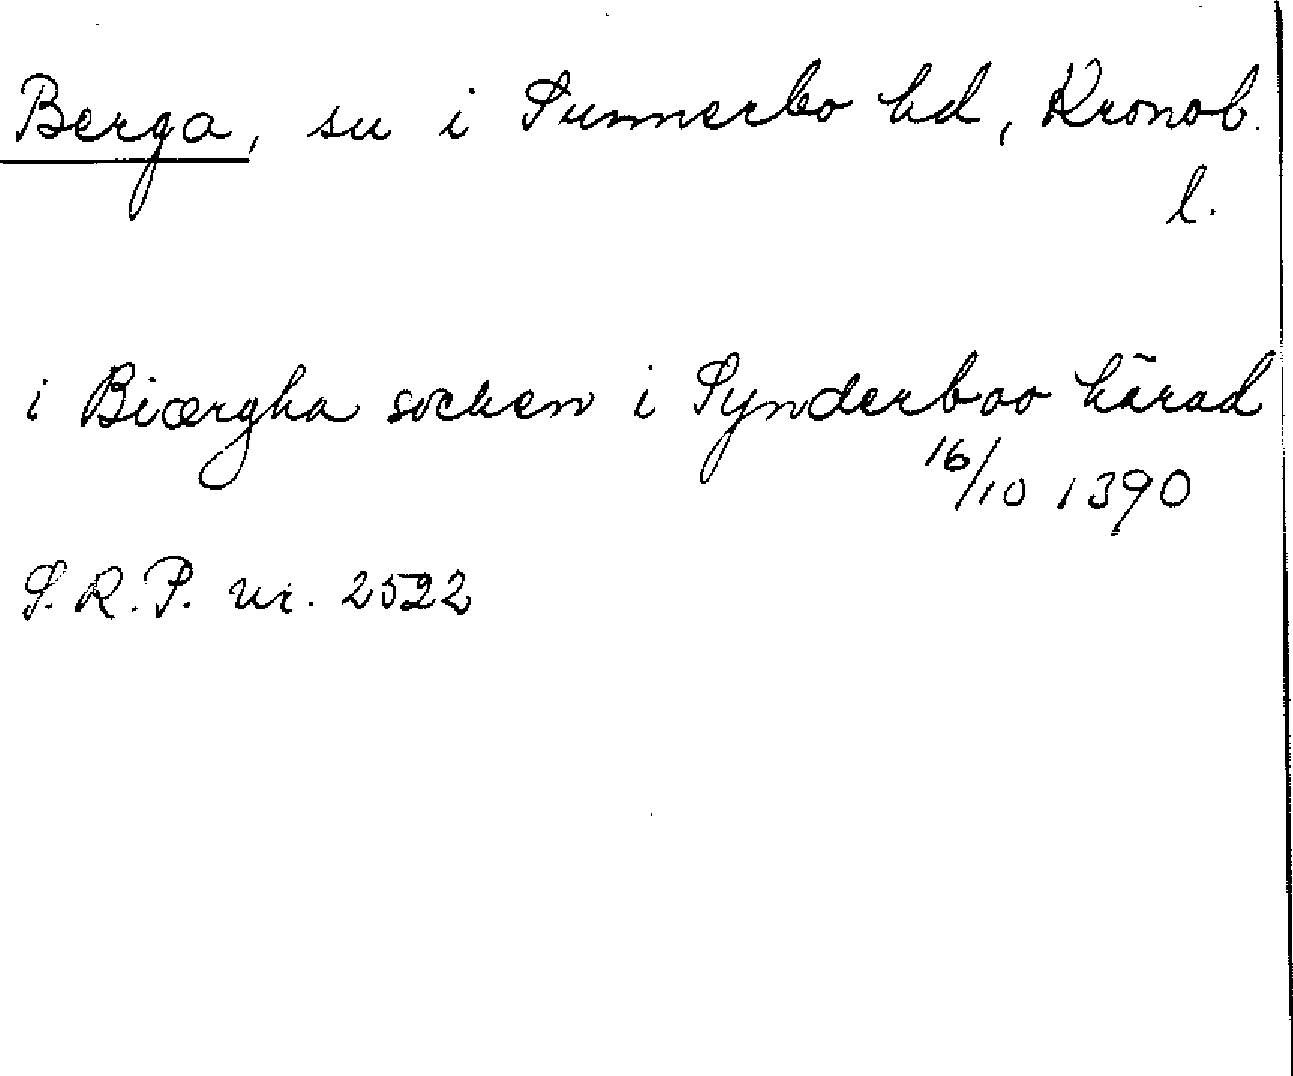 Berga, sn i Sunnerbo hd, Kronob.
l.
i Biærgha socken i Synderboo härad
16/10 1390
S.R.P. nr. 2522